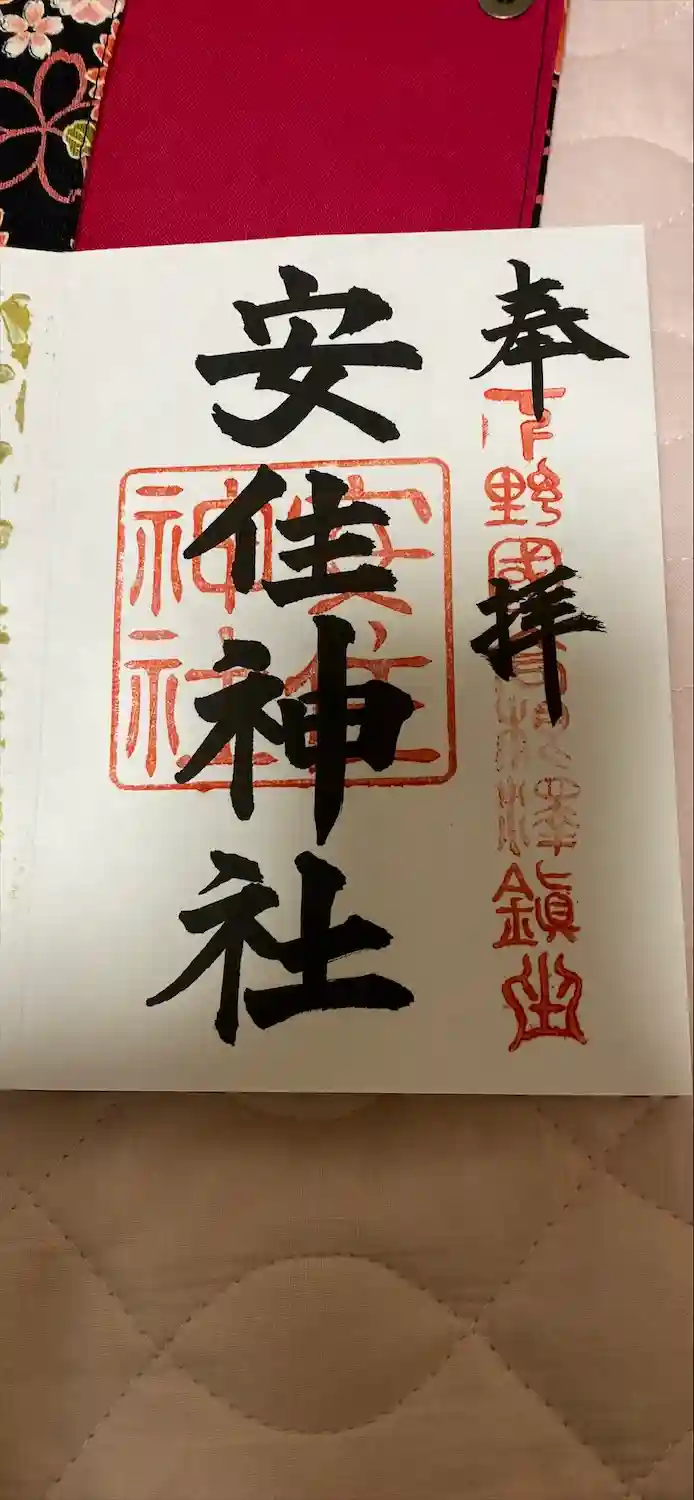 奉拝
下野國
鎮坐
安住神社
安住神社